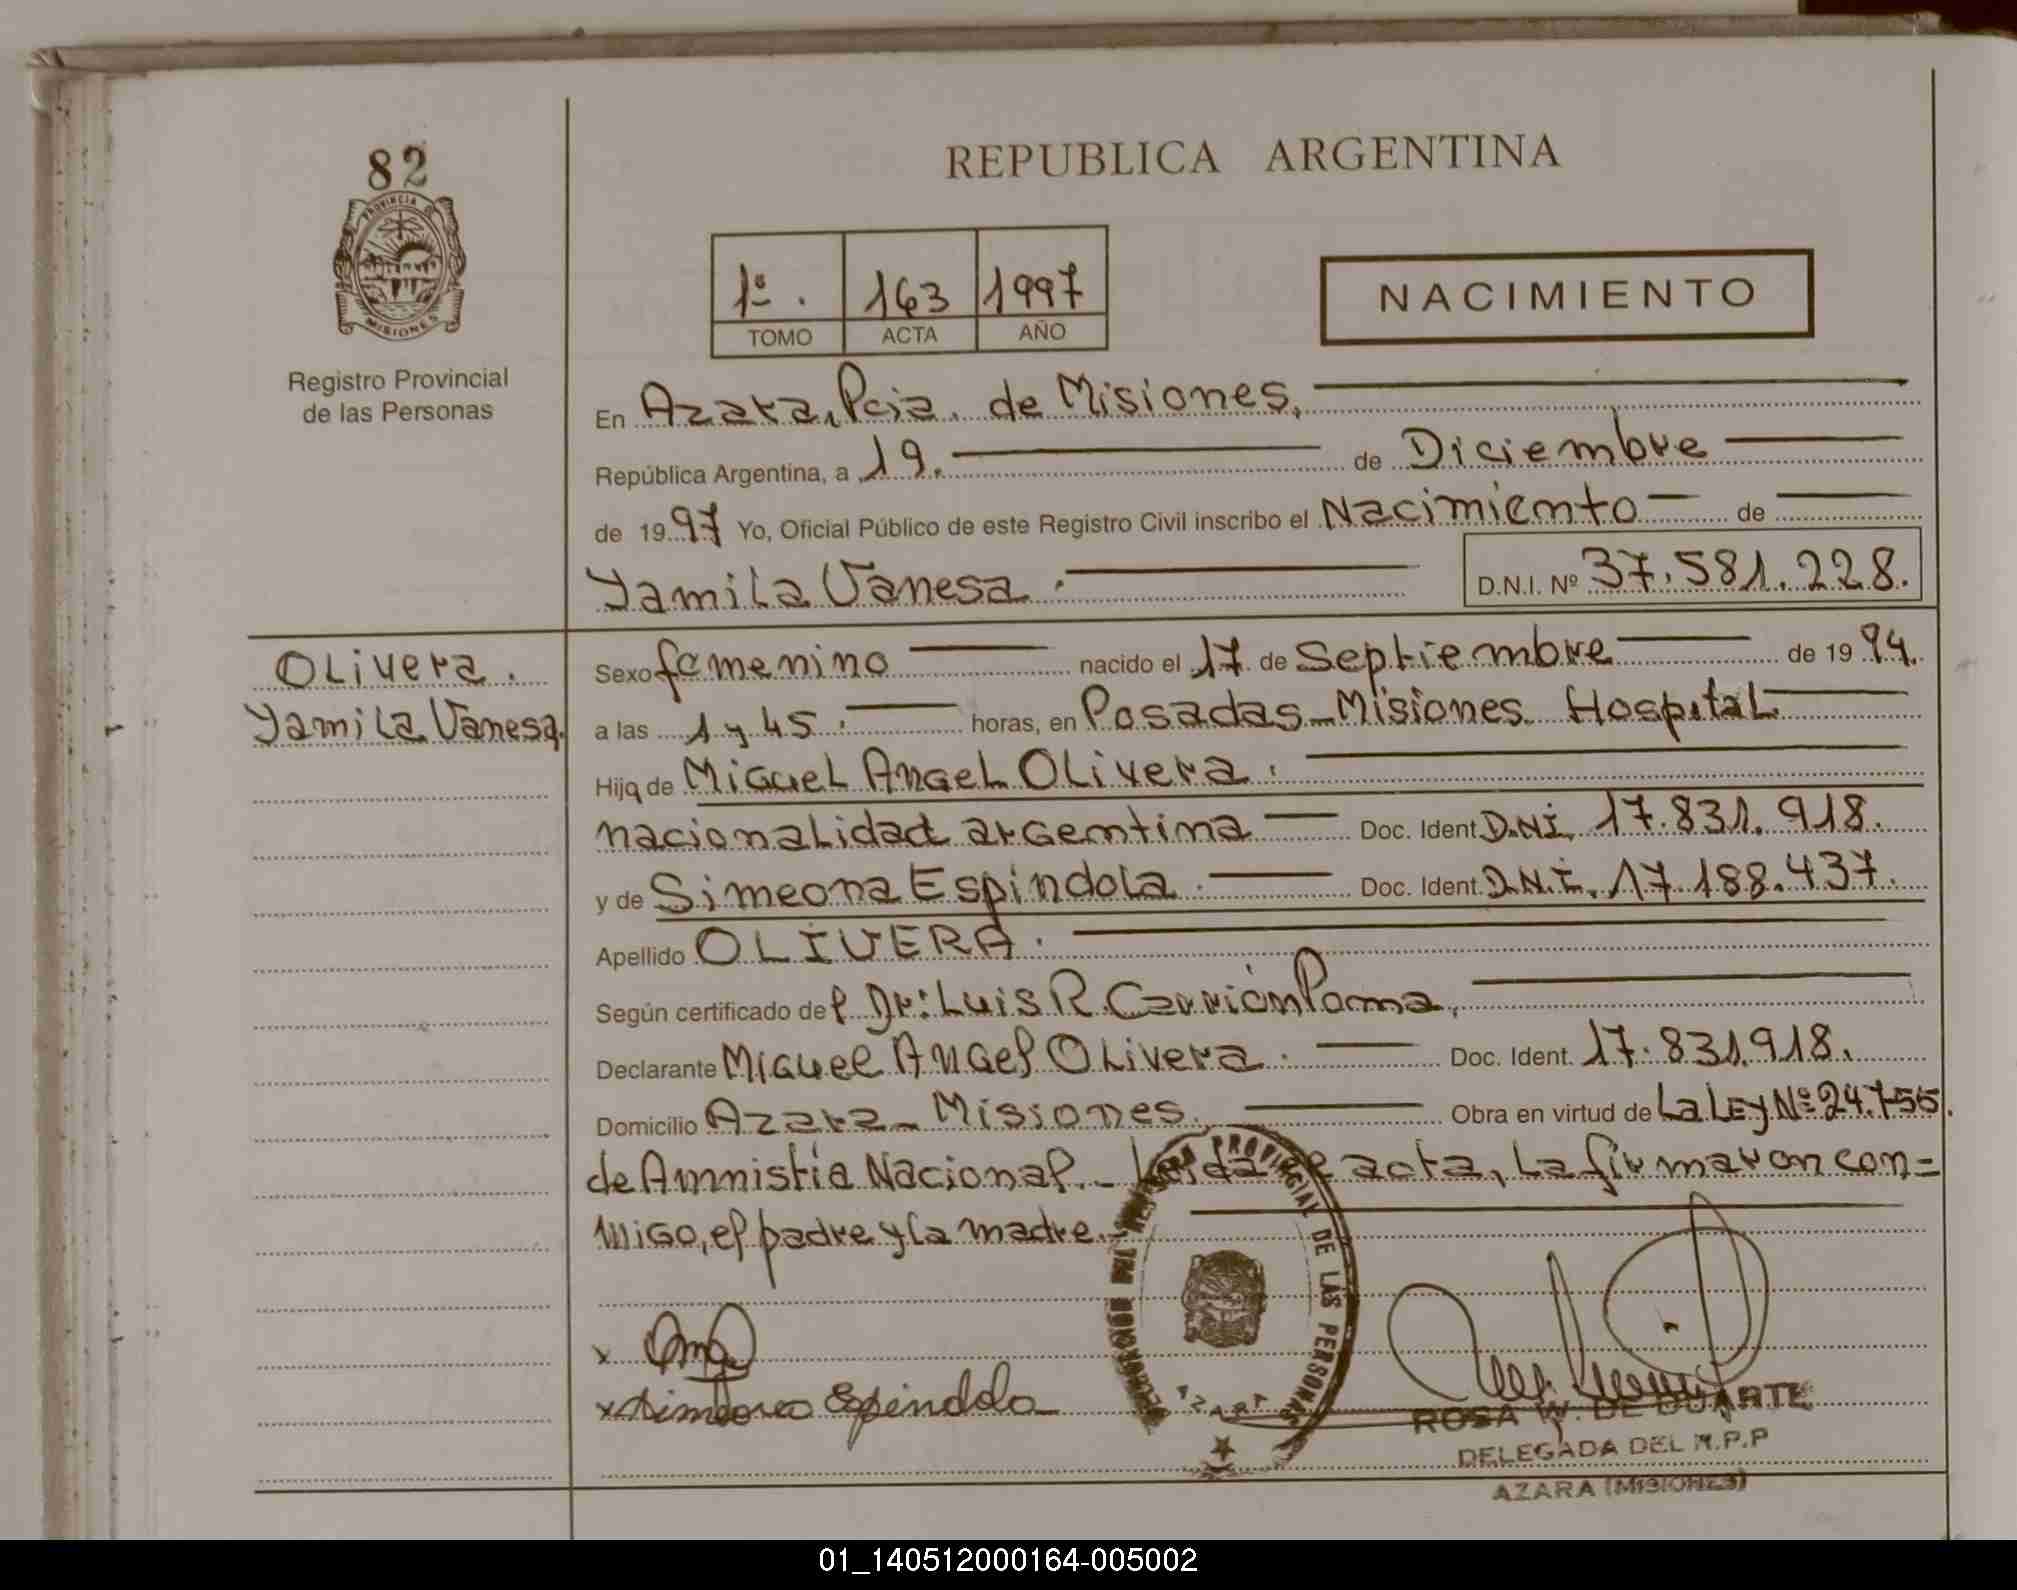 82
PROVINCIA
MISIONES
Registro Provincial
de las Personas
REPUBLICA ARGENTINA
1º. 163 1997
TOMO ACTA AÑO
NACIMIENTO
En Azara, Pcia. de Misiones,
República Argentina, a 19. de Diciembre
de 1997 Yo, Oficial Público de este Registro Civil inscribo el Nacimiento de
Yamila Vanesa. D.N.I. Nº 37.581.228.
Olivera.
Yamila Vanesa.
Sexo femenino nacido el 17 de Septiembre de 1994.
a las 1 y 45. horas, en Posadas - Misiones Hospital
Hija de Miguel Angel Olivera.
nacionalidad argentina Doc. Ident. D.N.I. 17.831.918.
y de Simeona Espindola. Doc. Ident. D.N.I. 17.188.437.
Apellido OLIVERA.
Según certificado del Dr: Luis R. Carrión Poma,
Declarante Miguel Angel Olivera. Doc. Ident. 17.831.918.
Domicilio Azara - Misiones. Obra en virtud de La Ley Nº 24.755.
de Amnistía Nacional. - Leída el acta, la firmaron con=
migo, el padre y la madre. -
REGISTRO PROVINCIAL DE LAS PERSONAS
AZARA
x
x Simeona Espindola
ROSA W. DE DUARTE
DELEGADA DEL R.P.P
AZARA (MISIONES)
01_140512000164-005002